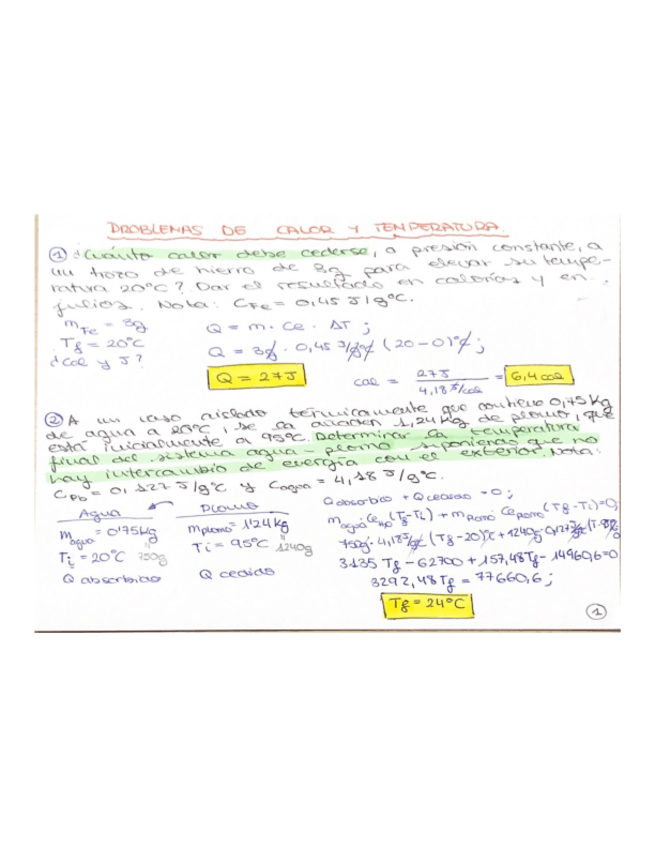 PROBLEMAS DE CALOR Y TEMPERATURA.
① ¿Cuánto calor debe cederse, a presión constante, a
un trozo de hierro de 3g para elevar su tempe-
ratura 20°C? Dar el resultado en calorías y en
julios. Nota: CFe = 0,45 J/g°C.
mFe = 3g
Tf = 20°C
¿Cal y J?
Q = m · Ce · ΔT ;
Q = 3g · 0,45 J/g°C (20-0)°C ;
Q = 27J
cal = 27J / 4,18 J/cal = 6,4 cal
② A un vaso aislado térmicamente que contiene 0,75 Kg
de agua a 20°C, se la añaden 1,24 Kg de plomo, que
está inicialmente a 95°C. Determinar la temperatura
final del sistema agua - plomo suponiendo que no
hay intercambio de energía con el exterior. Nota:
CPb = 0,127 J/g°C y Cagua = 4,18 J/g°C.
Agua
magua = 0'75Kg
= 750g
Ti = 20°C
Q absorbido
Plomo
mplomo = 1'24 Kg
= 1240g
Ti = 95°C
Q cedido
Q absorbido + Q cedido = 0 ;
magua · CeH2O (Tf - Ti) + mplomo · Ceplomo (Tf - Ti) = 0;
750g · 4,18 J/g°C (Tf - 20)°C + 1240g · 0,127
3135 Tf - 62700 + 157,48 Tf - 14960,6 = 0
3292,48 Tf = 77660,6 ;
Tf = 24°C
1